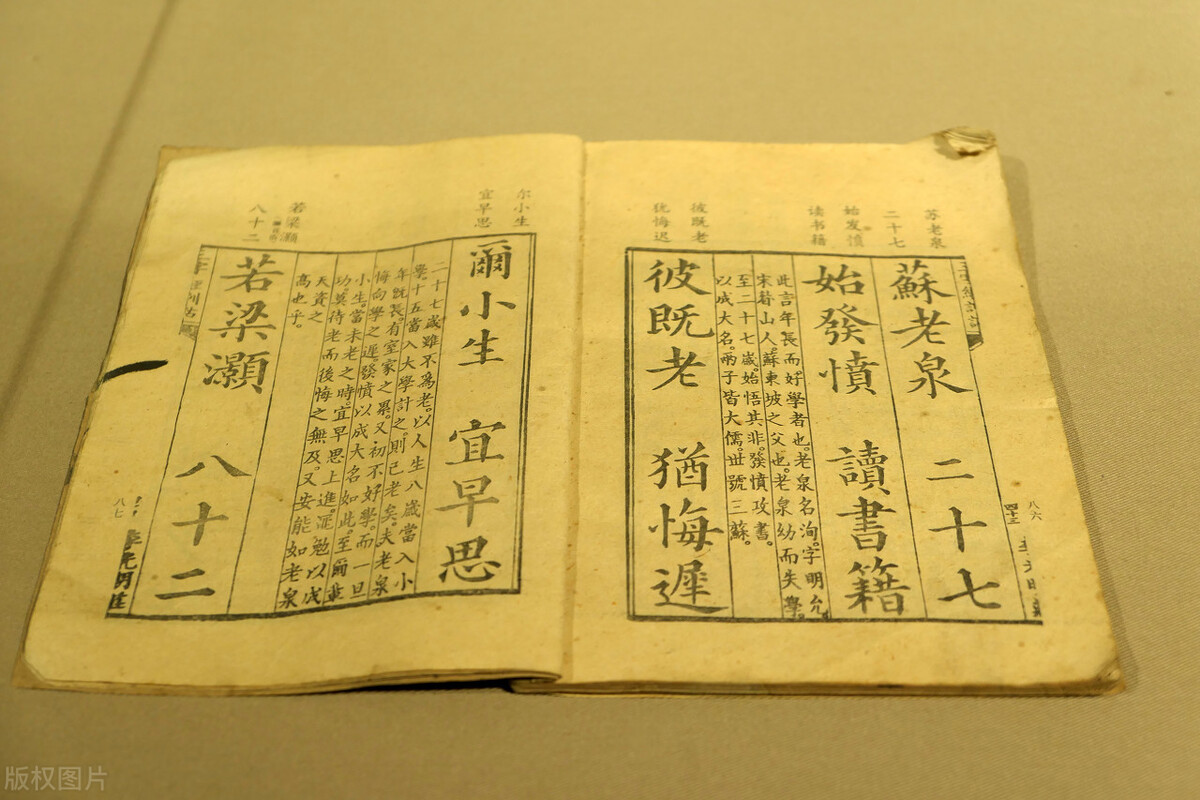 苏老泉
二十七
始发愤
读书籍
彼既老
犹悔迟
蘇老泉 二十七
始發憤 讀書籍
此言年長而好學者也。老泉名洵。字明允。
宋眷山人。蘇東坡之父也。老泉幼而失學。
至二十七歲。始悟其非。發憤攻書。
以成大名。兩子皆大儒。世號三蘇。
彼既老 猶悔遲
八六
尔小生
宜早思
若梁灝
八十二
爾小生 宜早思
二十七歲雖不爲老。以人生八歲當入小
學。十五當入大學計之。則已老矣。夫老泉
年既長。有室家之累。又初不好學。而一旦
悔向學之遲。發憤以成大名如此。至爾
小生。當未老之時。宜早思上進。勉以成
功。莫待老而後悔之無及。又安能如老泉
天資之
高也乎。
若梁灝 八十二
八七
版权图片